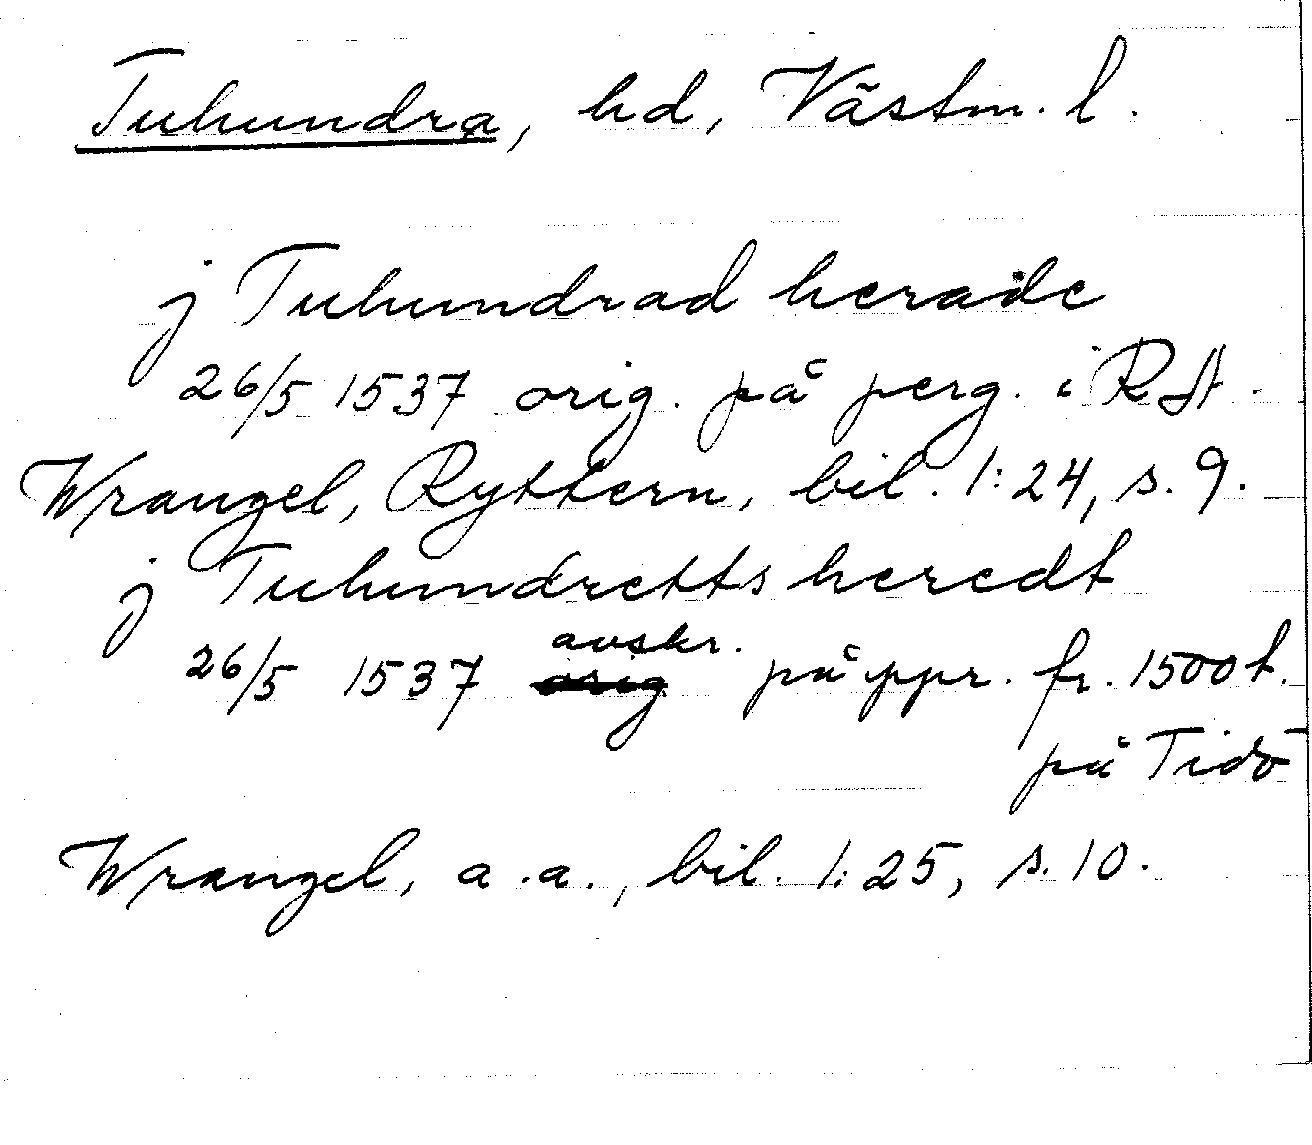 Tuhundra, hd, Västm. l.
j Tuhundrad herade
26/5 1537 orig. på perg. i RA.
Wrangel, Ryttern, bil. 1:24, s. 9.
j Tuhundretts heredt
26/5 1537 avskr. på ppr. fr. 1500t.
på Tidö
Wrangel, a.a., bil. 1:25, s. 10.